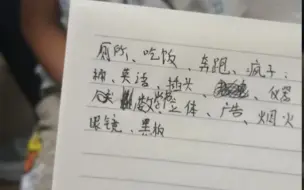 厕所、吃饭、奔跑、疯子、
英语、插头、仪器
数学、立体、广告、烟火
眼镜、黑板